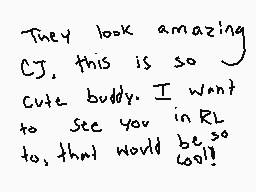 They look amazing
CJ, this is so
cute buddy. I want
to see you in RL
to, that would be so
cool!!